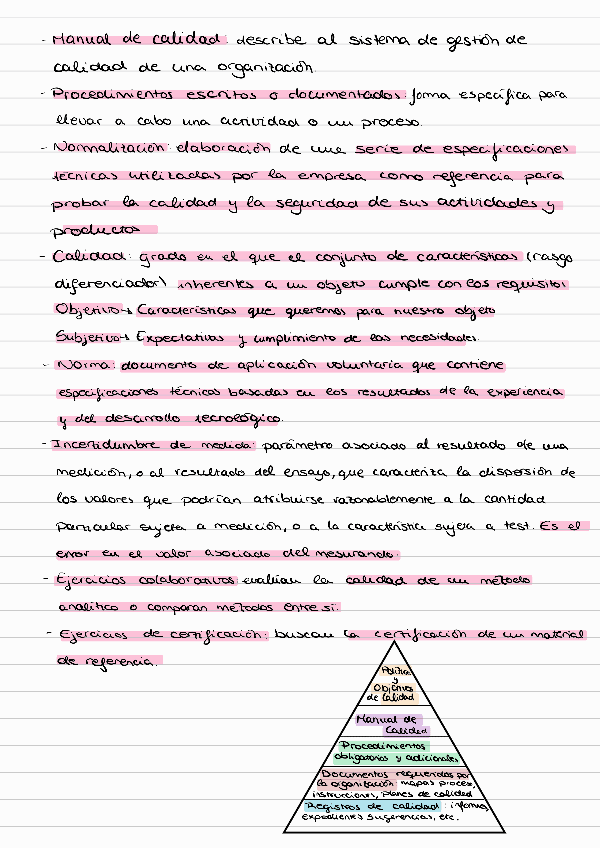 - Manual de calidad: describe al sistema de gestión de
calidad de una organización.
- Procedimientos escritos o documentados: forma específica para
llevar a cabo una actividad o un proceso.
- Normalización: elaboración de una serie de especificaciones
técnicas utilizadas por la empresa como referencia para
probar la calidad y la seguridad de sus actividades y
productos
- Calidad: grado en el que el conjunto de características (rasgo
diferenciador) inherentes a un objeto cumple con los requisitos
Objetivo→ Características que queremos para nuestro objeto
Subjetivo→ Expectativas y cumplimiento de las necesidades.
- Norma: documento de aplicación voluntaria que contiene
especificaciones técnicas basadas en los resultados de la experiencia
y del desarrollo tecnológico.
- Incertidumbre de medida: parámetro asociado al resultado de una
medición, o al resultado del ensayo, que caracteriza la dispersión de
los valores que podrían atribuirse razonablemente a la cantidad
particular sujeta a medición, o a la característica sujeta a test. Es el
error en el valor asociado del mesurando.
- Ejercicios colaborativos: evalúan la calidad de un método
analítico o comparan métodos entre sí.
- Ejercicios de certificación: buscan la certificación de un material
de referencia.
Política
y
Objetivos
de Calidad
Manual de
Calidad
Procedimientos
obligatorios y adicionales
Documentos requeridos por
la organización: mapas proceso,
instrucciones, planes de calidad
Registros de calidad: informes,
expedientes sugerencias, etc.